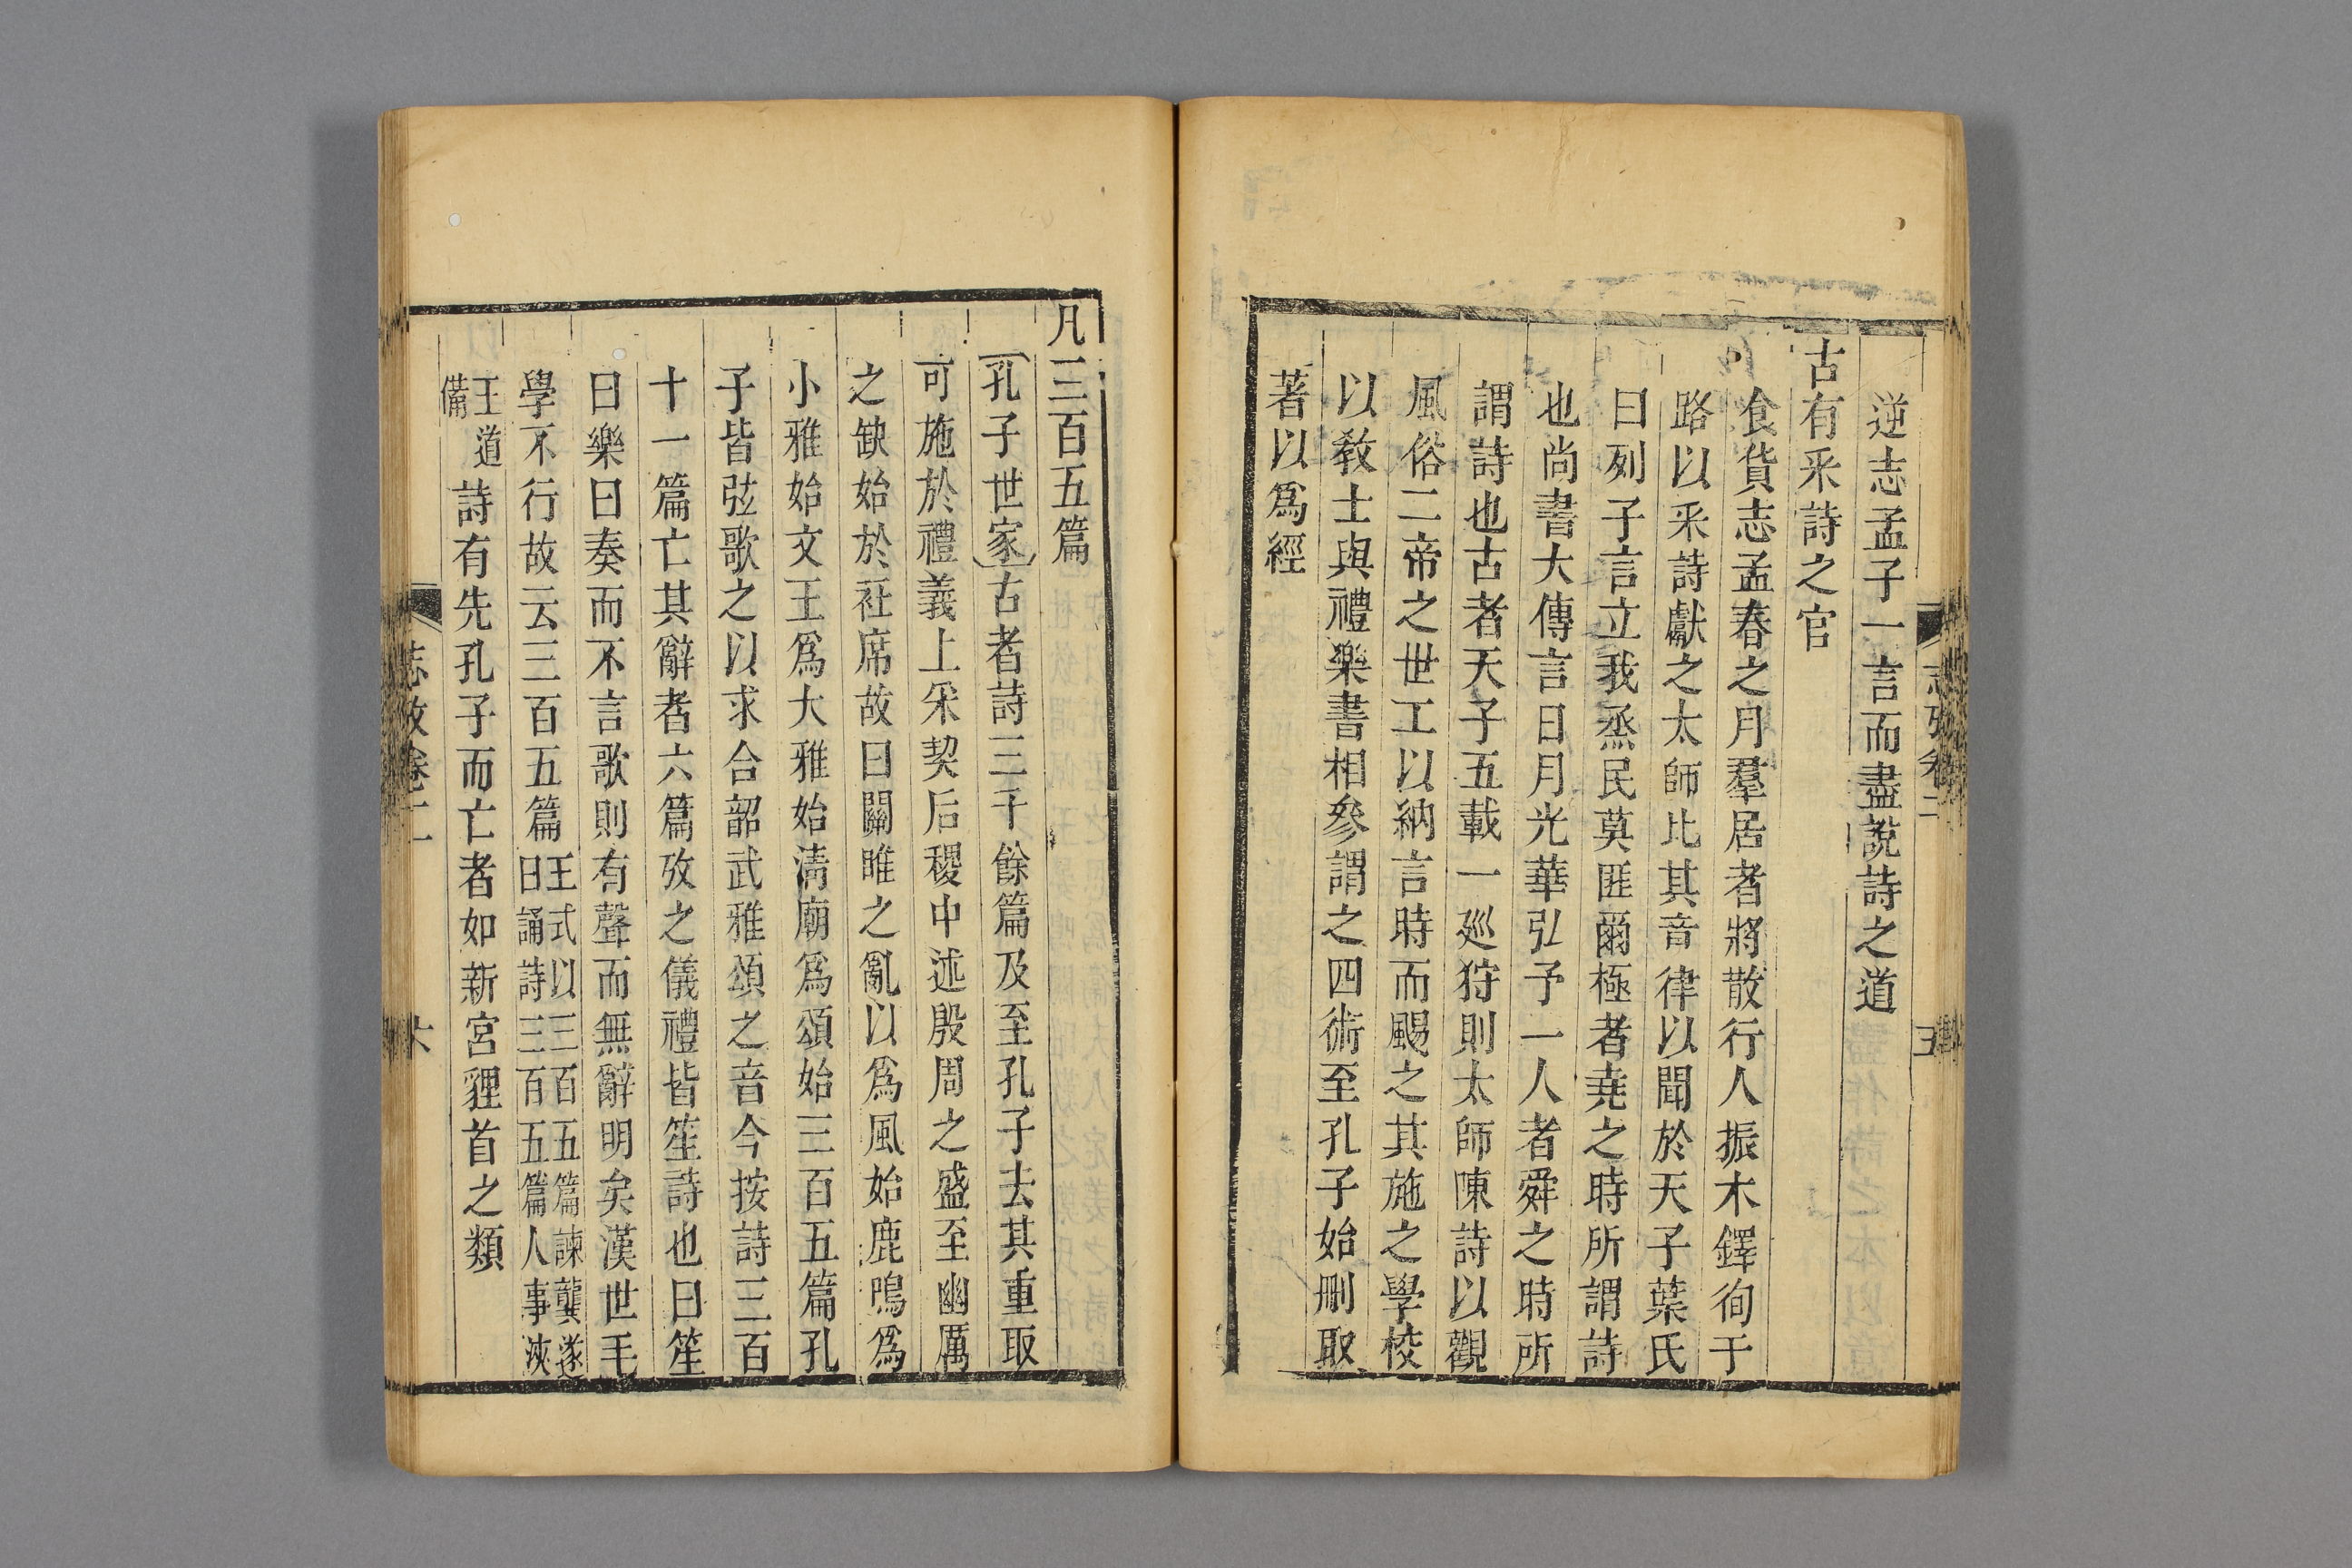 逆志孟子一言而盡說詩之道
古有采詩之官
食貨志孟春之月羣居者將散行人振木鐸徇于
路以采詩獻之太師比其音律以聞於天子葉氏
曰列子言立我烝民莫匪爾極者堯之時所謂詩
也尚書大傳言日月光華弘予一人者舜之時所
謂詩也古者天子五載一廵狩則太師陳詩以觀
風俗二帝之世工以納言時而颺之其施之學校
以敎士與禮樂書相參謂之四術至孔子始刪取
著以爲經
凡三百五篇
孔子世家古者詩三千餘篇及至孔子去其重取
可施於禮義上采契后稷中述殷周之盛至幽厲
之缺始於衽席故曰關雎之亂以爲風始鹿鳴爲
小雅始文王爲大雅始清廟爲頌始三百五篇孔
子皆弦歌之以求合韶武雅頌之音今按詩三百
十一篇亡其辭者六篇攷之儀禮皆笙詩也曰笙
曰樂曰奏而不言歌則有聲而無辭明矣漢世毛
學不行故云三百五篇王式以三百五篇諫龔遂曰誦詩三百五篇人事浹
王道備詩有先孔子而亡者如新宮貍首之類
志攷卷二
六